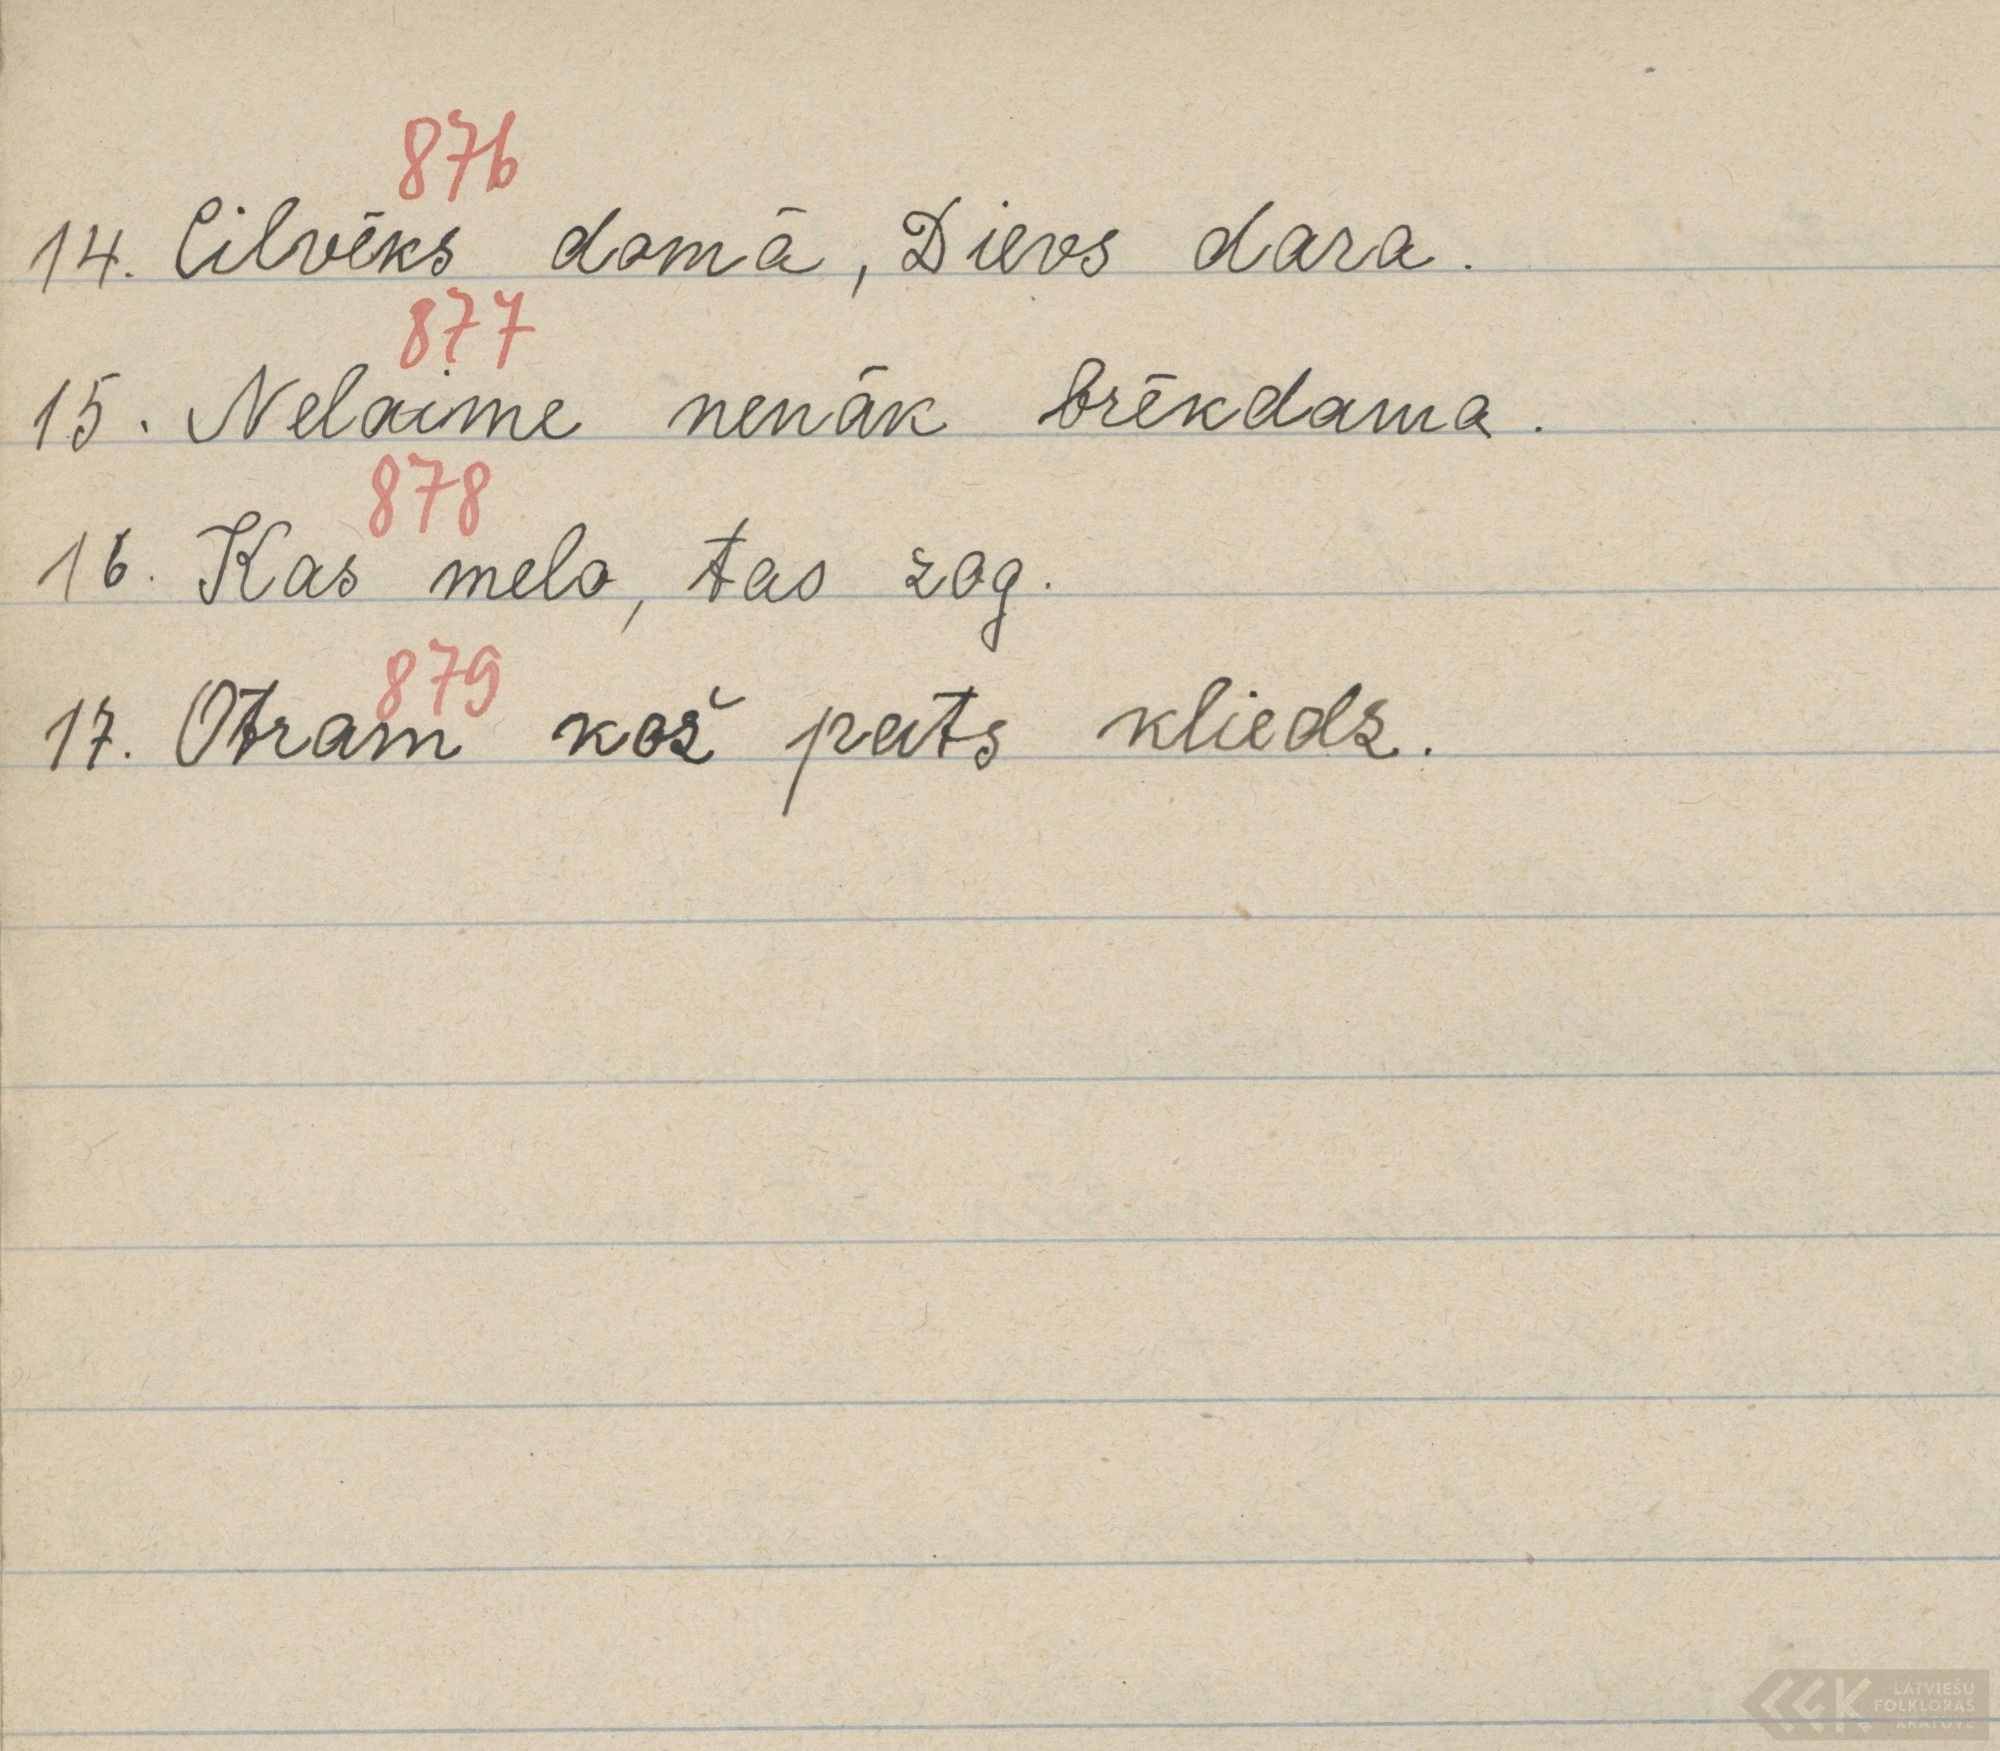 876
14. Cilvēks domā, Dievs dara.
877
15. Nelaime nenāk brēkdama.
878
16. Kas melo, tas zog.
879
17. Otram kož pats kliedz.
LATVIEŠU
FOLKLORAS
KRĀTUVE